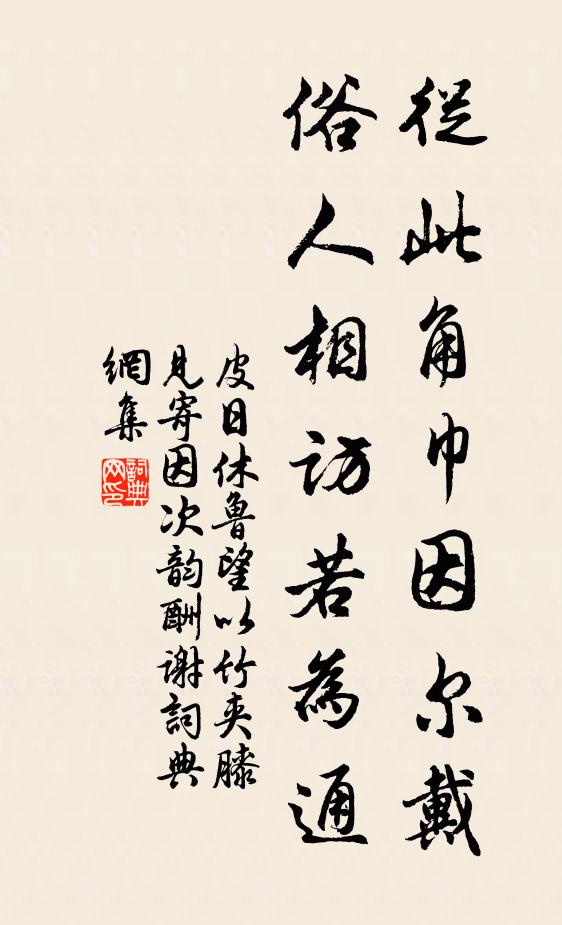 從此角巾因尔戴
俗人相訪若為通
皮日休魯望以竹夾膝
見寄因次韵酬谢詞典
網集
詞典网印